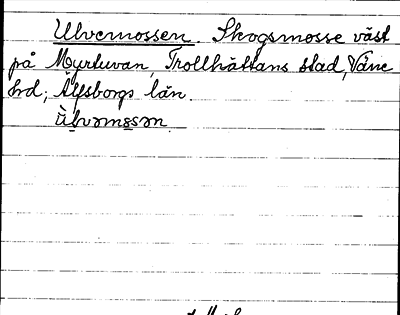 Ulvemossen. Skogsmosse väst
på Myrtuvan, Trollhättans stad, Väne
hd; Älfsborgs län.